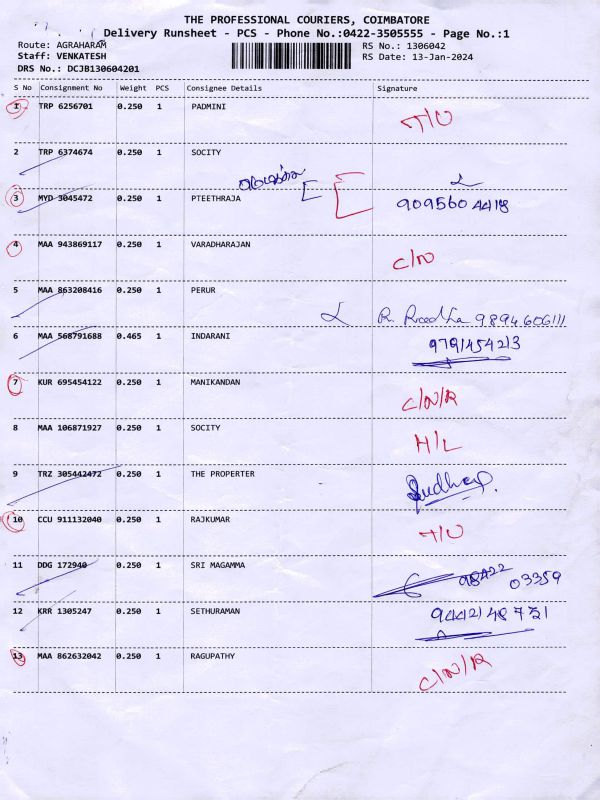 THE PROFESSIONAL COURIERS, COIMBATORE
Delivery Runsheet - PCS - Phone No.:0422-3505555 - Page No.:1
Route: AGRAHARAM RS No.: 1306042
Staff: VENKATESH RS Date: 13-Jan-2024
DRS No.: DCJB130604201
S No Consignment No Weight PCS Consignee Details Signature
1 TRP 6256701 0.250 1 PADMINI
2 TRP 6374674 0.250 1 SOCITY
3 MYD 3045472 0.250 1 PTEETHRAJA 909560 4418
4 MAA 943869117 0.250 1 VARADHARAJAN C/N
5 MAA 863208416 0.250 1 PERUR R. Raedha 9894606111
6 MAA 568791688 0.465 1 INDARANI 9791454213
7 KUR 695454122 0.250 1 MANIKANDAN C/N/R
8 MAA 106871927 0.250 1 SOCITY H/L
9 TRZ 305442472 0.250 1 THE PROPERTER
10 CCU 911132040 0.250 1 RAJKUMAR
11 DDG 172940 0.250 1 SRI MAGAMMA 98422 03359
12 KRR 1305247 0.250 1 SETHURAMAN 9442148731
13 MAA 862632042 0.250 1 RAGUPATHY C/N/R